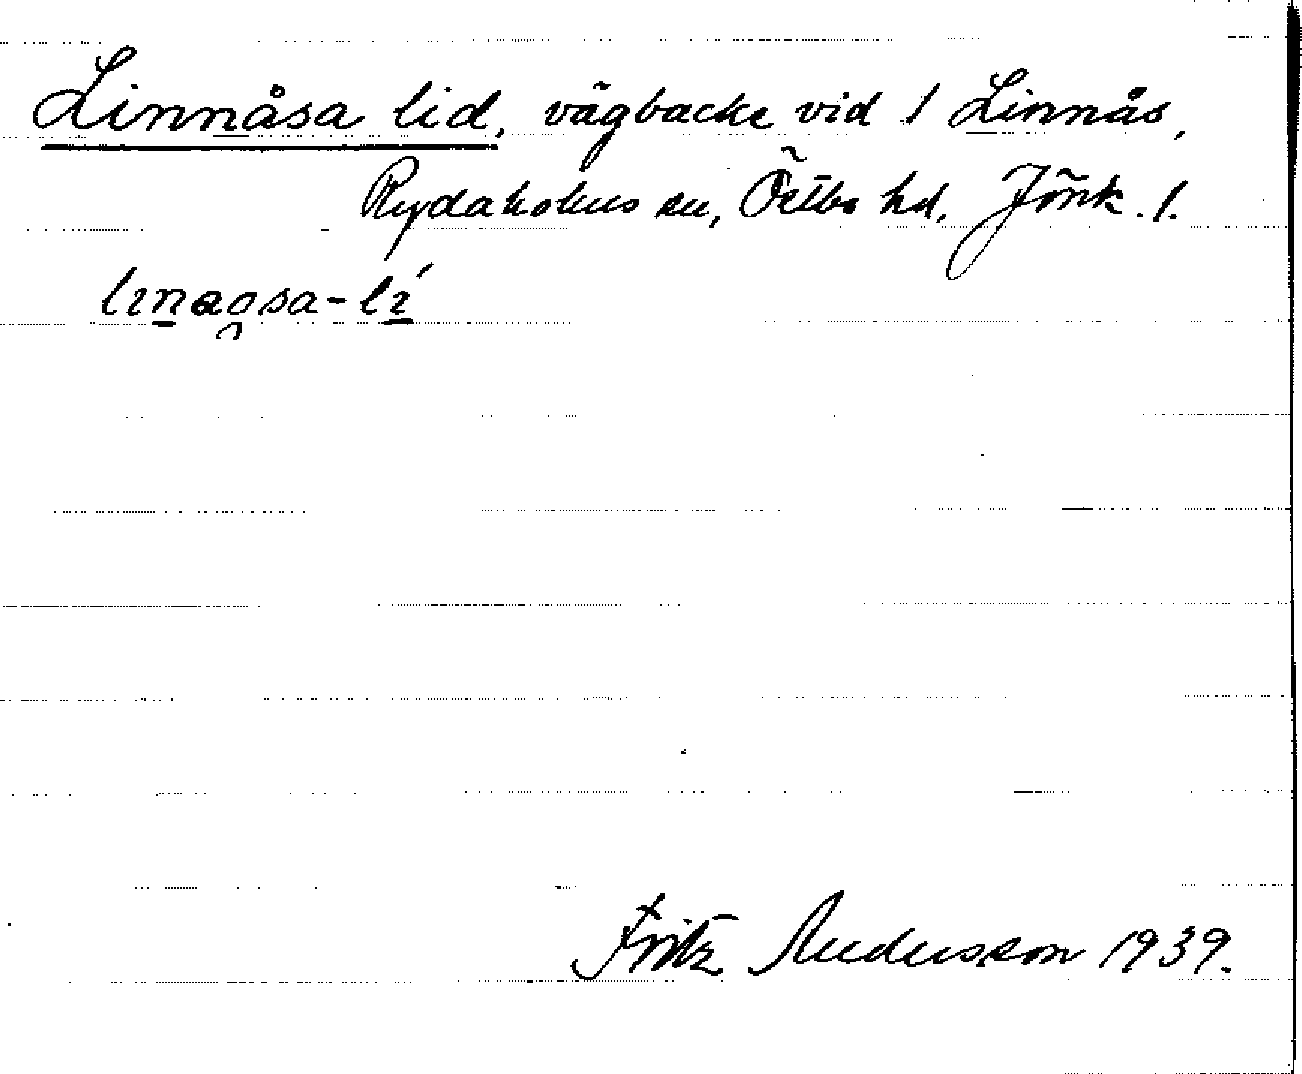 Linnåsa lid, vägbacke vid 1 Linnås,
Rydaholms sn, Östbo hd, Jönk. l.
lınaosa-lı́
Fritz Andersson 1939.